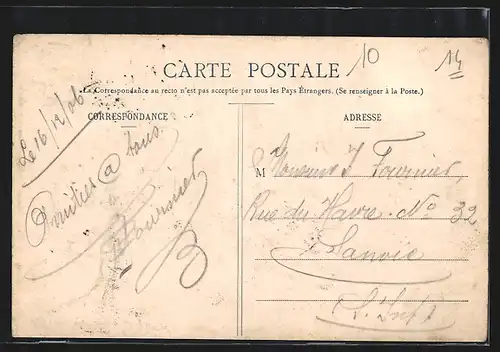 10
14
CARTE POSTALE
La Correspondance au recto n'est pas acceptée par tous les Pays Étrangers. (Se renseigner à la Poste.)
CORRESPONDANCE
Le 16/12/06
Amitiés à tous
Fournier
ADRESSE
M Monsieur J Fournier
Rue du Havre No 32
Sanvic
S. Infre